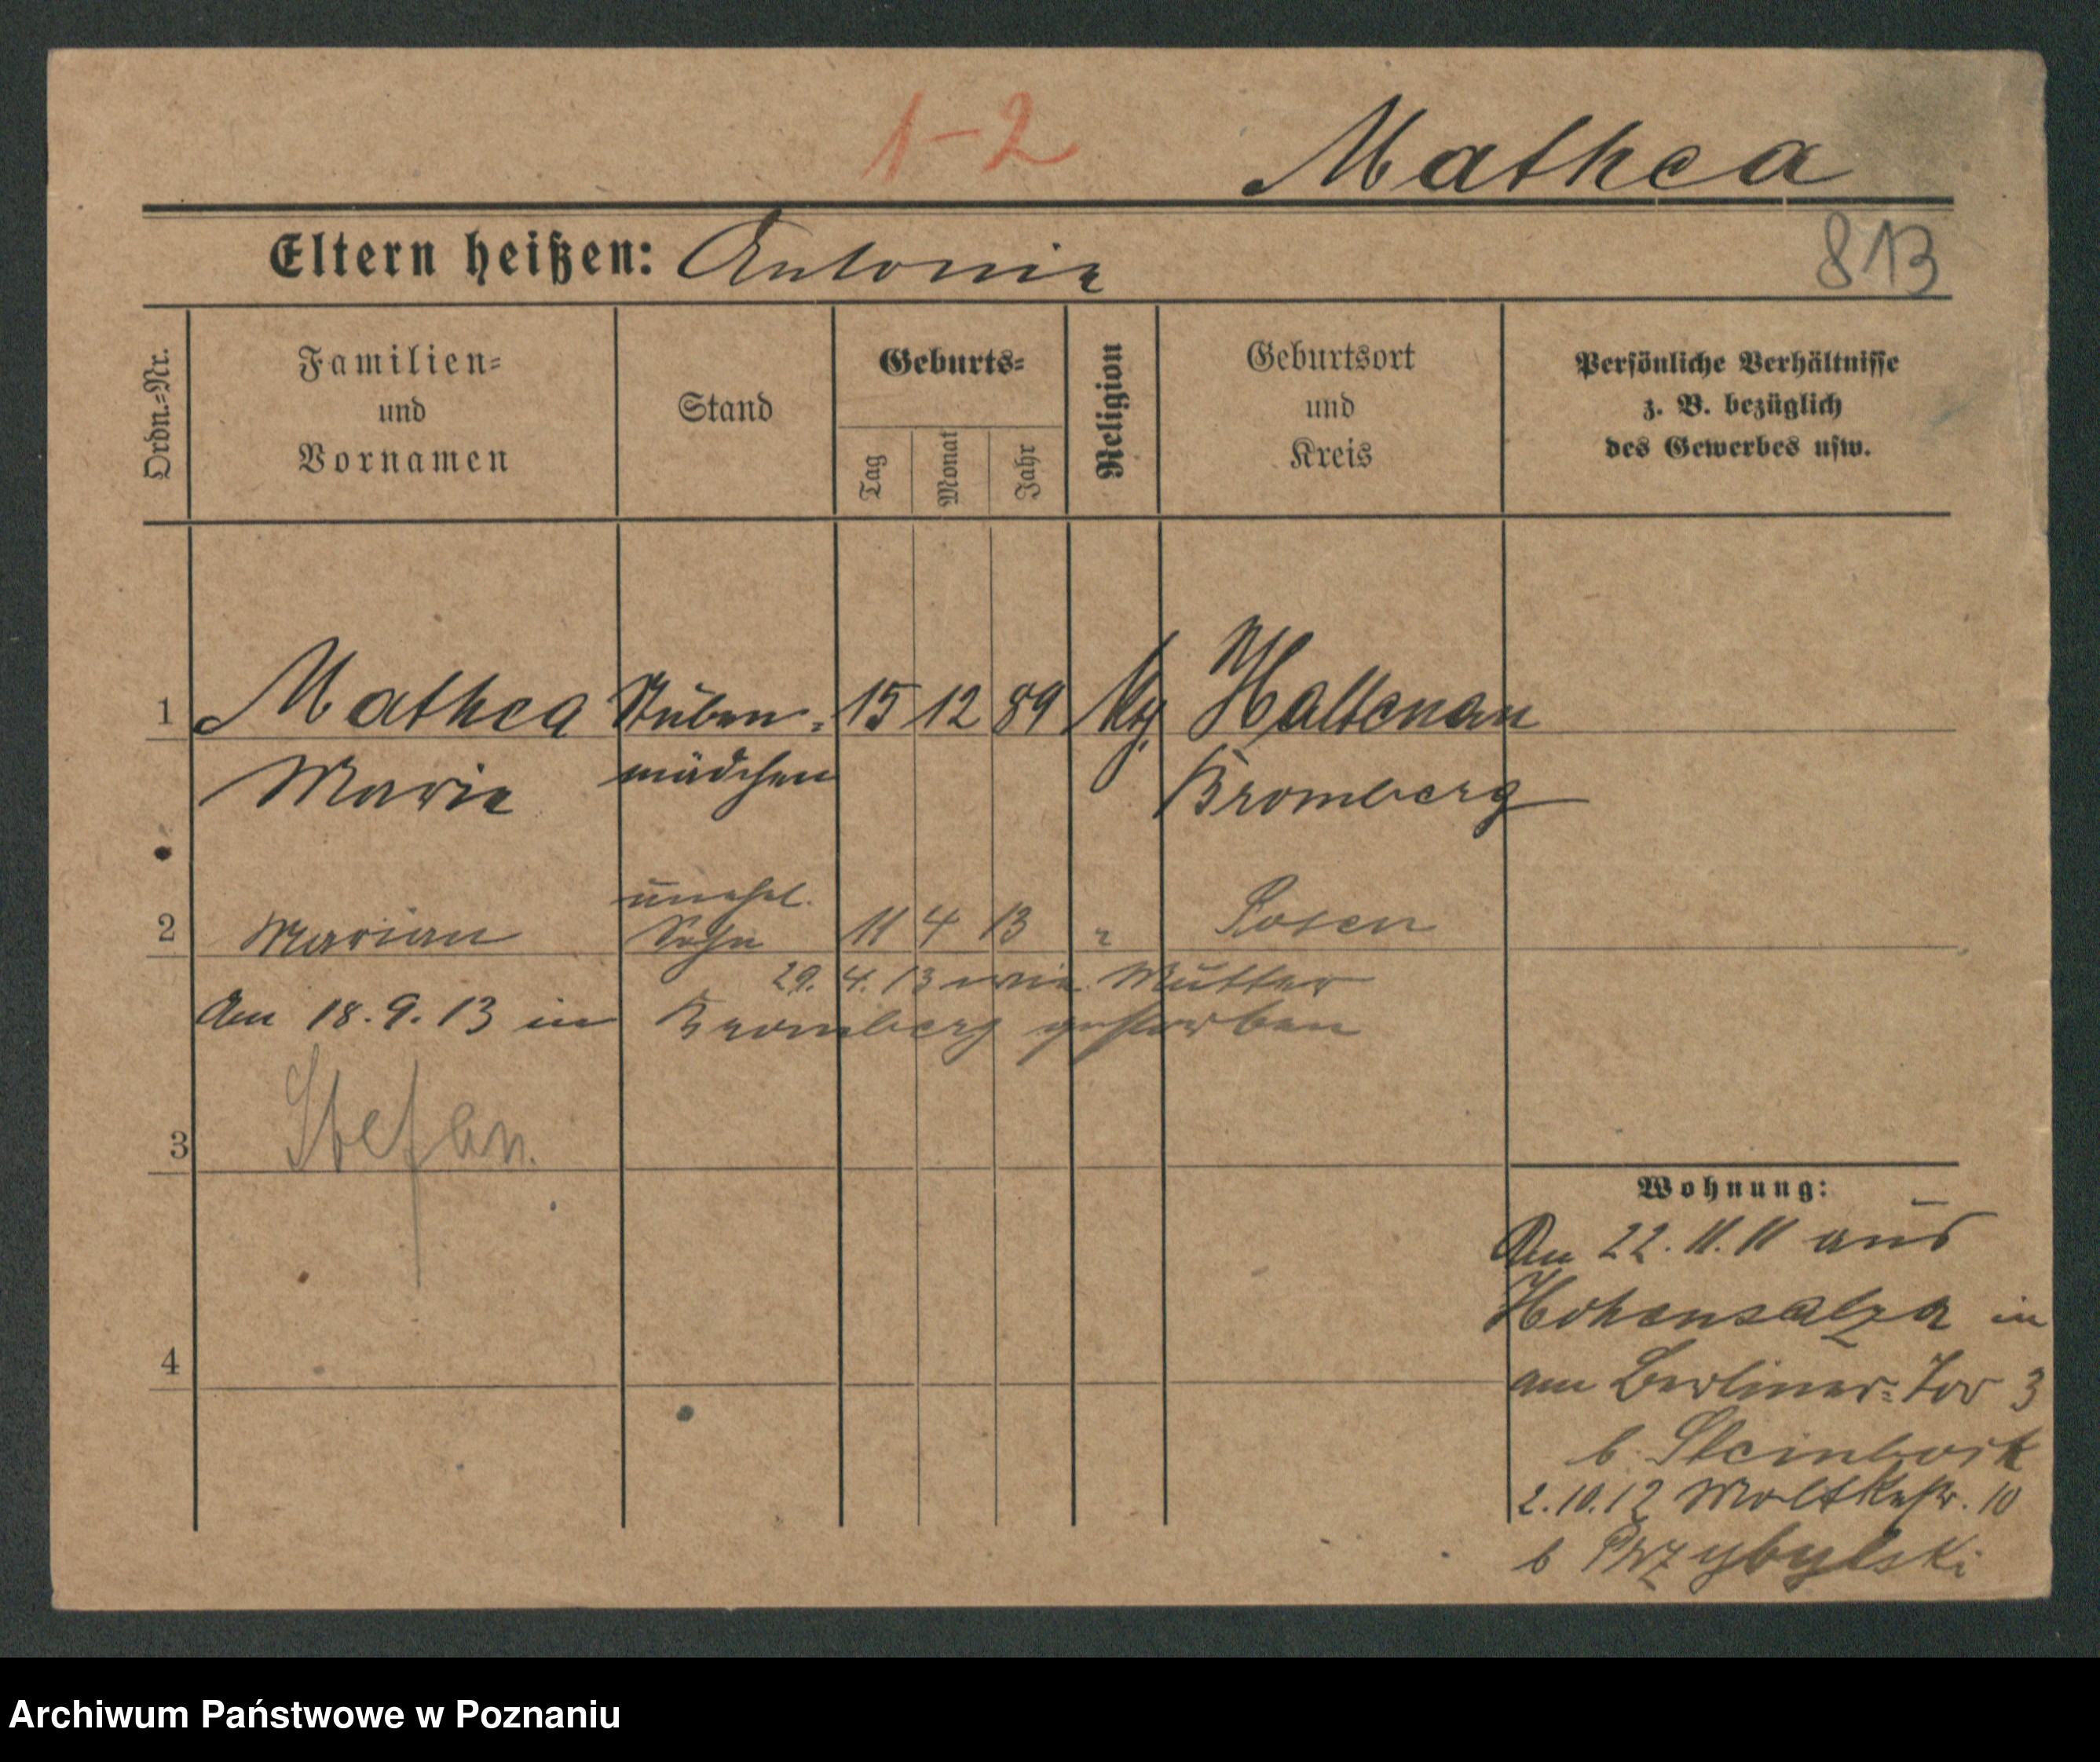 1-2
Mathea
Eltern heißen: Antonie
813
Ordn.-Nr.
Familien-
und
Vornamen
Stand
Geburts-
Tag
Monat
Jahr
Religion
Geburtsort
und
Kreis
Persönliche Verhältnisse
z. B. bezüglich
des Gewerbes usw.
1 Mathea Stuben- 15 12 89 Haltenau
Marie mädchen Bromberg
unehel.
2 Marian Sohn 11 4 13 " Posen
29. 4. 13 wie Mutter
Am 18. 9. 13 in Bromberg gestorben
3 Stefan.
4
Wohnung:
Am 22. 11. 11 aus
Hohensalza in
am Berliner-Tor 3
b.
2. 10. 12 Moltkestr. 10
b Przybylski
Archiwum Państwowe w Poznaniu